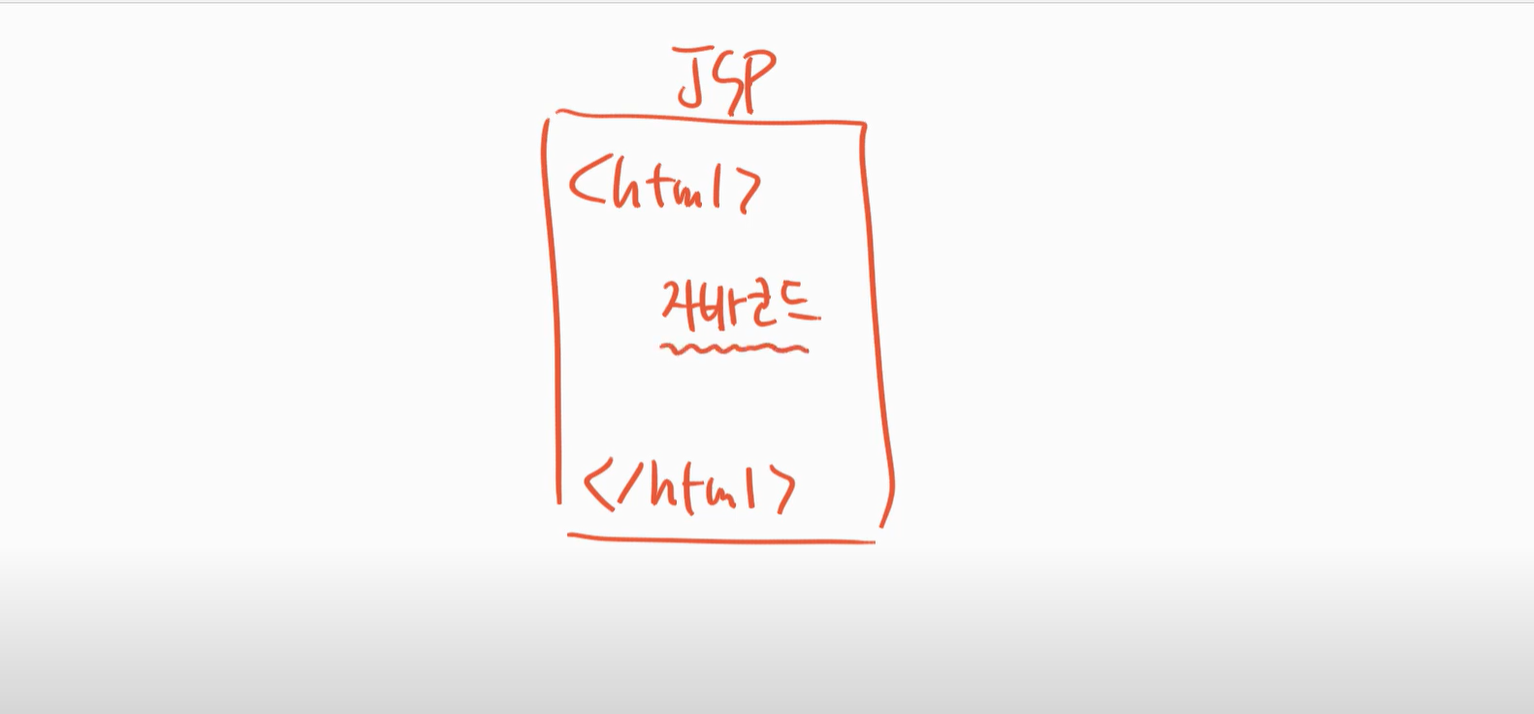 JSP
<html>
자바코드
</html>